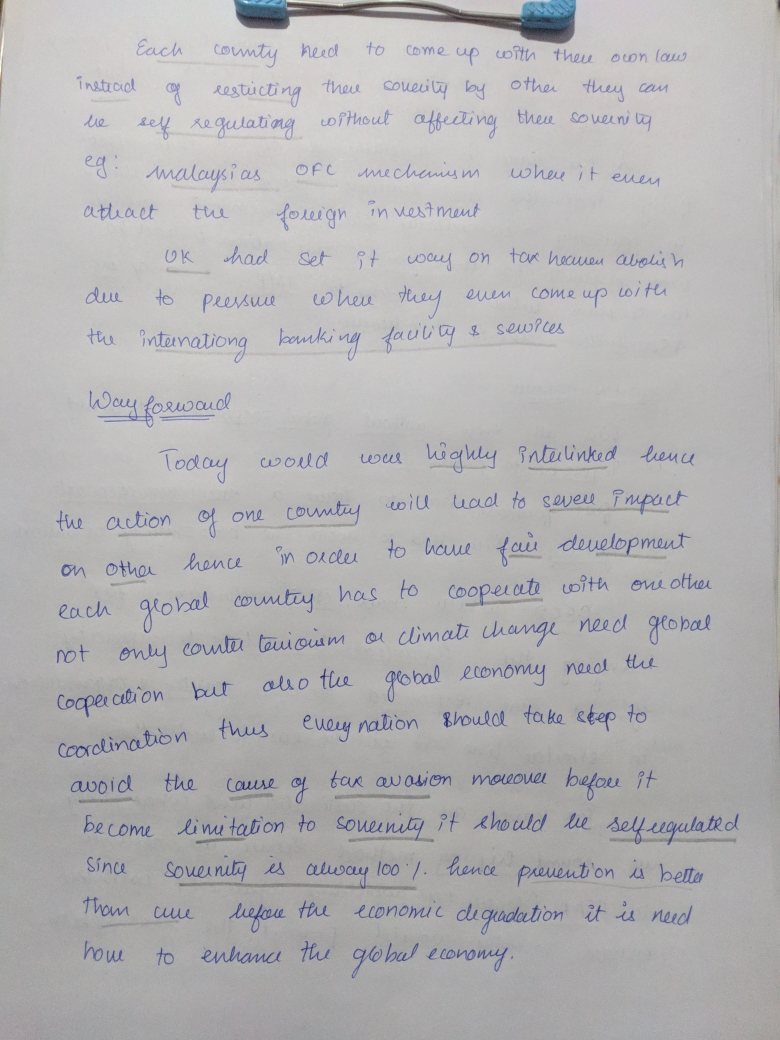 Each county need to come up with there own law
instead of restricting there soverity by other they can
be self regulating without affecting there sovernity
eg: malaysias OFC mechanism where it even
attract the foreign investment
UK had set it way on tax heaven abolish
due to pressure where they even come up with
the internationg banking facility & services
Way forward
Today world was highly interlinked hence
the action of one country will lead to severe impact
on other hence in order to have fair development
each global country has to cooperate with one other
not only counter terriorism or climate change need global
cooperation but also the global economy need the
coordination thus every nation should take step to
avoid the cause of tax avasion moreover before it
become limitation to soverinity it should be self regulated
since soverinity is alway 100%. hence prevention is better
than cure before the economic degradation it is need
hour to enhance the global economy.